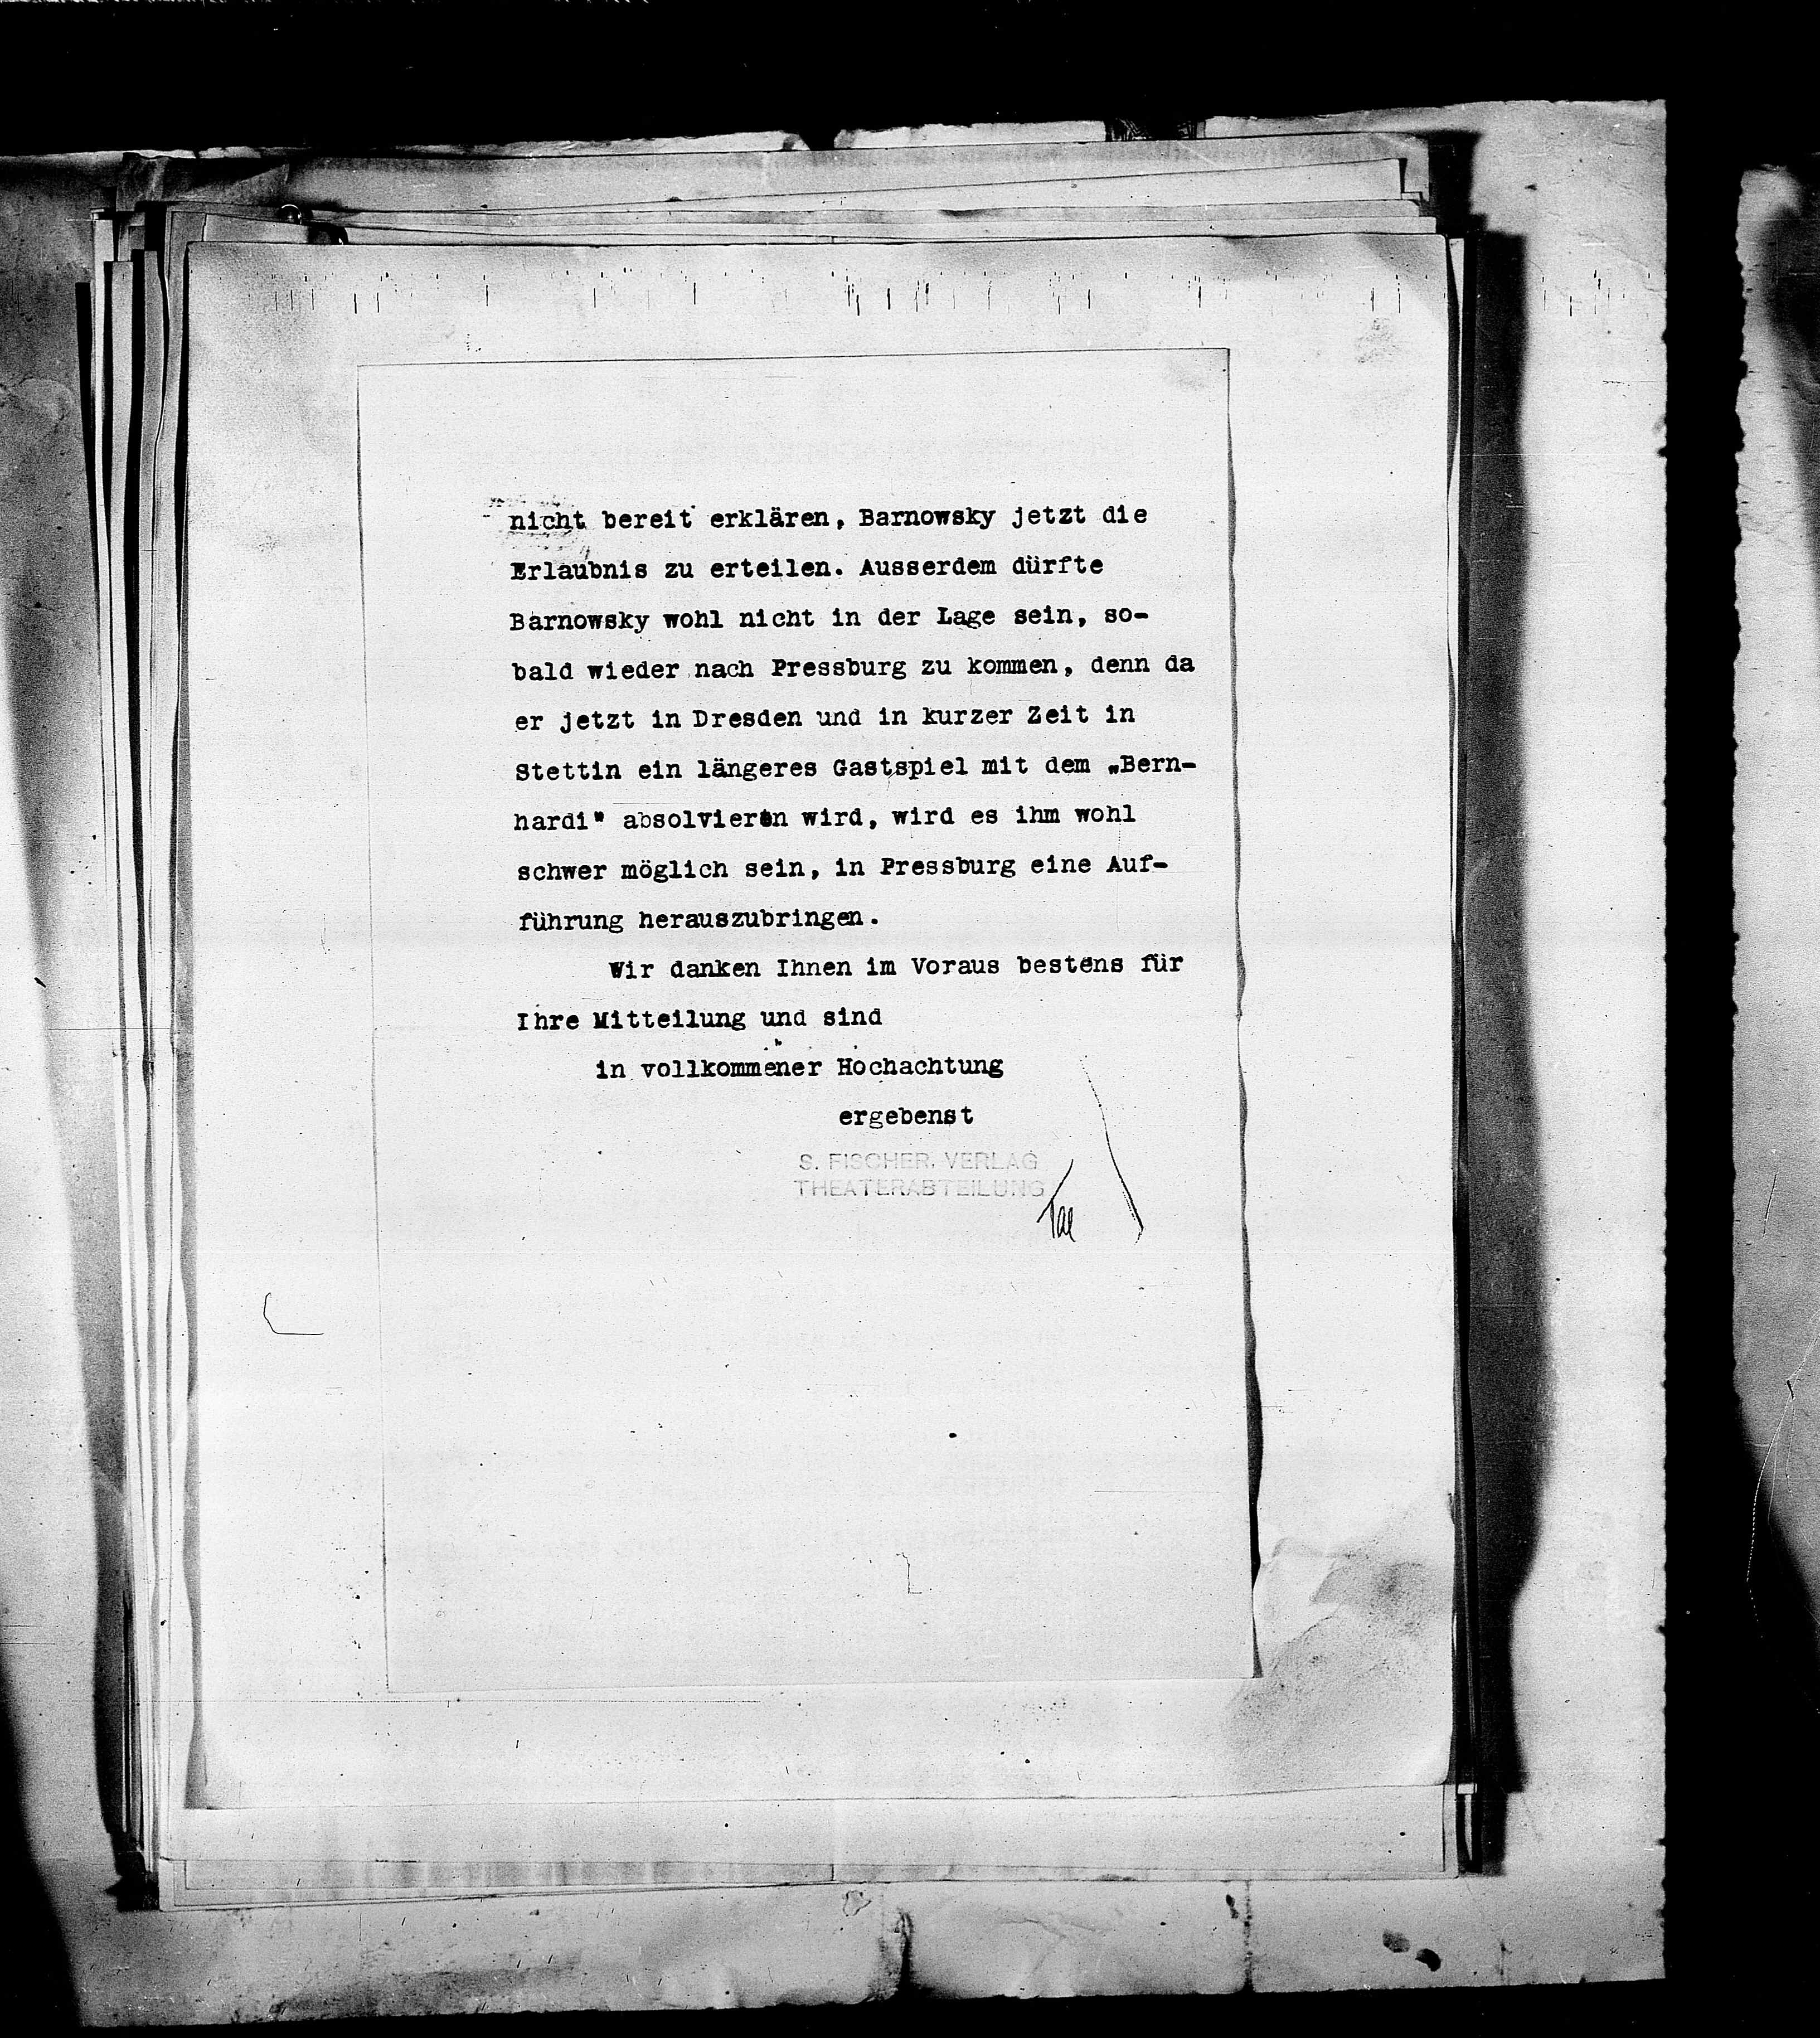 nicht bereit erklären, Barnowsky jetzt die
Erlaubnis zu erteilen. Ausserdem dürfte
Barnowsky wohl nicht in der Lage sein, so-
bald wieder nach Pressburg zu kommen, denn da
er jetzt in Dresden und in kurzer Zeit in
Stettin ein längeres Gastspiel mit dem „Bern-
hardi" absolvieren wird, wird es ihm wohl
schwer möglich sein, in Pressburg eine Auf-
führung herauszubringen.
Wir danken Ihnen im Voraus bestens für
Ihre Mitteilung und sind
in vollkommener Hochachtung
ergebenst
S. FISCHER, VERLAG
THEATERABTEILUNG